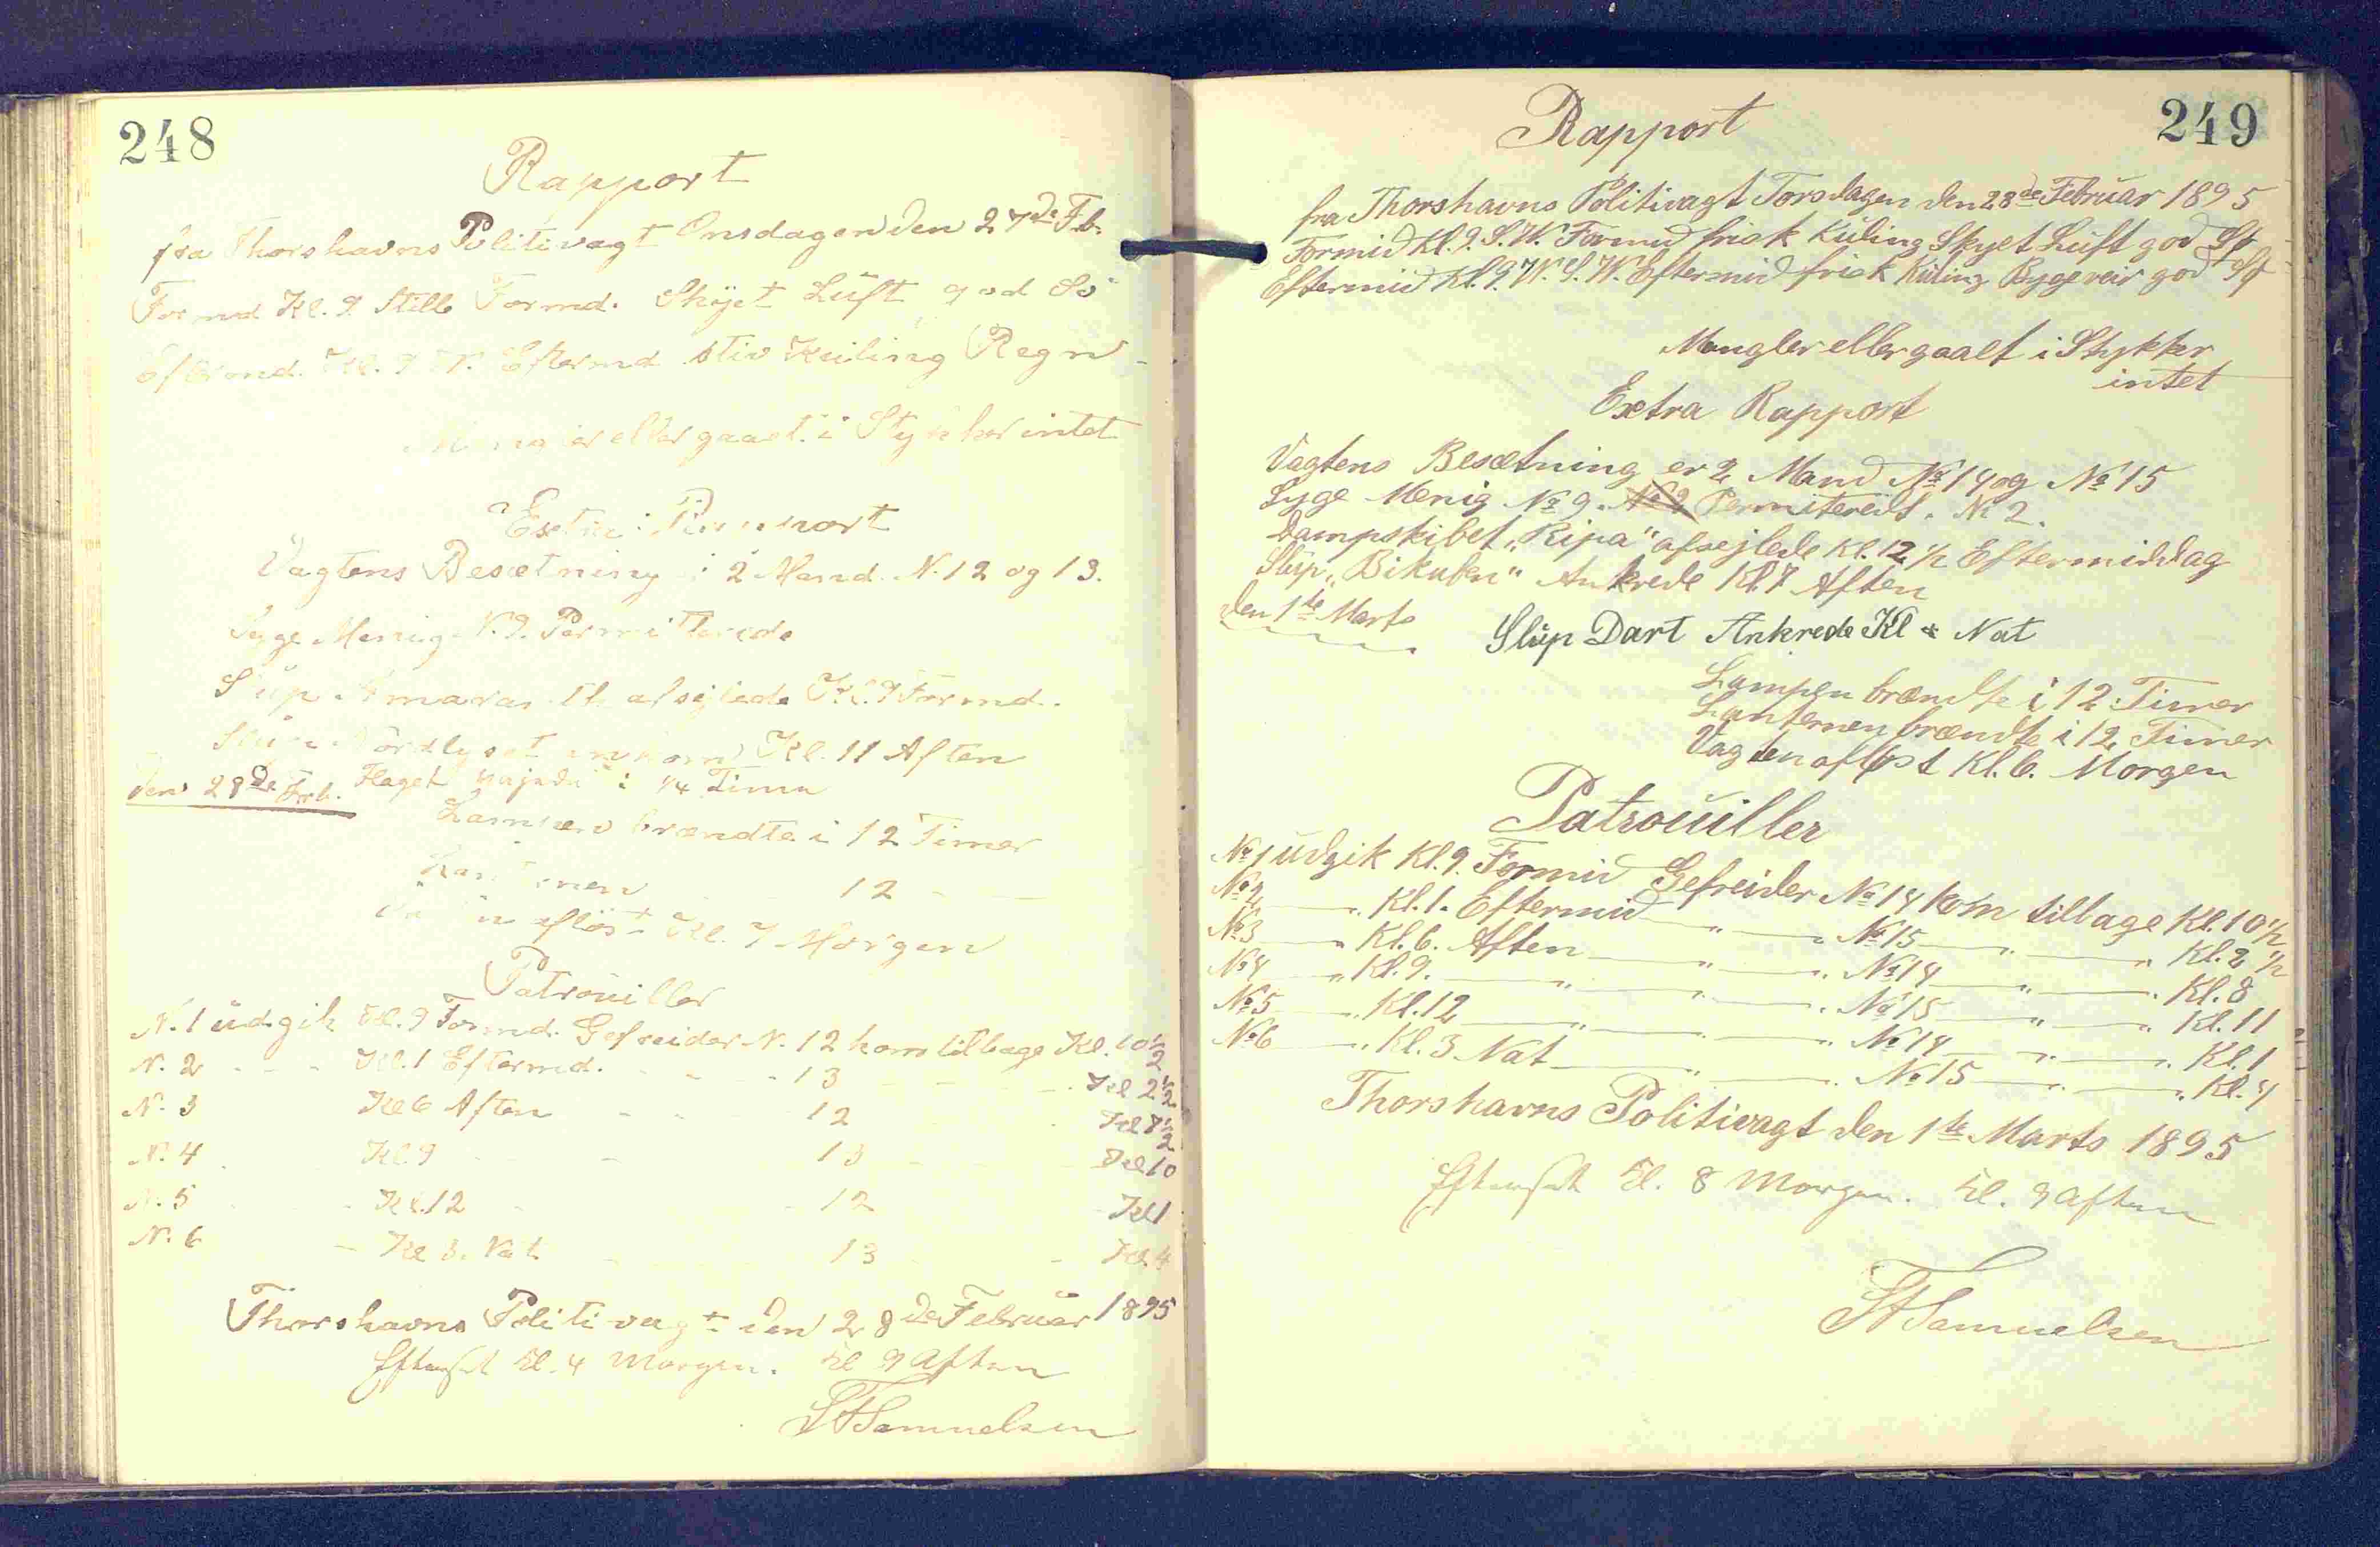 248
Rapport
fra Thorshavns Politivagt Onsdagen den 27de Feb.
Formd Kl. 9 Stille Formd. Skyet Lüft god Sö
Eftermd. Kl. 9 W. Eftermd stiv Küling Regn
Mangler eller gaaet i Stykker intet
Extra Rapport
Vagtens Besætning i 2 Mand. N. 12 og 13.
Syge Menig N. 9. Permitterede
Slüp afsejlede Kl. 9 Formd.
Slüp Nordlyset ankom Kl. 11 Aften
den 28de Feb. Flaget vajede i 1/4 Time
Lampen brændte i 12 Timer
Lanternen - 12 - -
Vagten aflöst Kl. 7 Morgen
Patroüiller
N. 1 üdgik Kl. 9 Formd. Gefreider N. 12 kom tilbage Kl. 10 1/2
N. 2 - - - Kl. 1 Eftermd. - - - 13 - - - Kl 2 1/2
N. 3 Kl 6 Aften - - 12 - Kl 8 1/2
N. 4 Kl. 9 - - 13 - - Kl 10
N. 5 - Kl. 12 - - 12 Kl 1
N. 6 - Kl 3. Nat - 13 - Kl. 4
Thorshavns Politivagt den 28de Februar 1895
Efterset Kl. 4 Morgen. Kl 9 Aften
Samuelsen
249
Rapport
fra Thorshavns Politivagt Torsdagen den 28de Februar 1895
Formid Kl. 9. S.W. Formid frisk Küling Skyet Lüft god Sö
Eftermid Kl. 9. W.S.W. Eftermid frisk Küling Bygeveir god Sö
Mangler eller gaaet i Stykker
intet
Extra Rapport
Vagtens Besætning er 2 Mand No 14 og No 15
Syge Menig No 9. No 2 Permiteredt. No 2.
Dampskibet „Ripa“ afsejlede Kl. 12 1/2 Eftermiddag
Slüp „Bikuben“ Ankrede Kl. 7 Aften
den 1te Marts
Slüp Dart Ankrede Kl Nat
Lampen brændte i 12 Timer
Lanternen brændte i 12 Timer
Vagten aflöst Kl. 6. Morgen
Patroüiller
No 1 Udgik Kl. 9. Formid Gefreider No 14 kom tilbage Kl. 10 1/2
No 2 — „ Kl. 1. Eftermid „ — „ No 15 — „ — „ Kl. 2 1/2
No 3 — „ Kl. 6. Aften — „ — „ No 14 — „ — „ Kl. 8
No 4 — „ Kl. 9. — „ — „ — „ No 15 — „ — „ Kl. 11
No 5 — „ Kl. 12 — „ — „ — „ No 14 — „ — „ Kl. 1
No 6 — „ Kl. 3 Nat — „ — „ No 15 — „ — „ Kl. 4
Thorshavns Politivagt den 1te Marts 1895
Efterset Kl. 8 Morgen. Kl. 9 Aften
Samuelsen